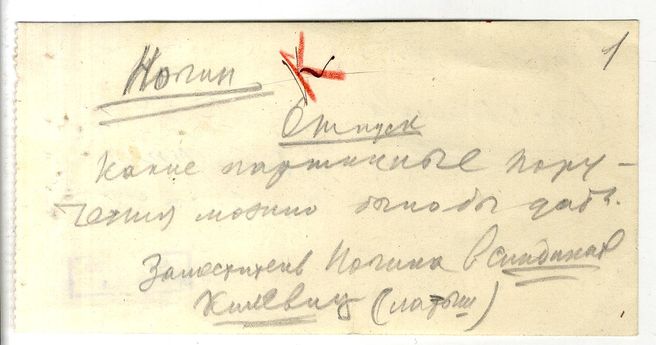 Ногин К 1
Отпуск
Какие партийные пору-
чения можно было бы дать.
Заместитель Ногина в Синдикате
Хилевиц (латыш)